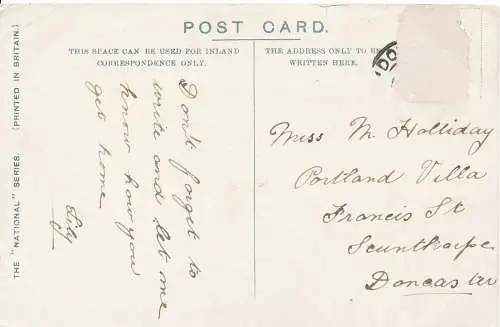 POST CARD.
THIS SPACE CAN BE USED FOR INLAND
CORRESPONDENCE ONLY.
THE ADDRESS ONLY TO BE
WRITTEN HERE.
THE "NATIONAL" SERIES. (PRINTED IN BRITAIN.)
Don't forget to
write and let me
know how you
get home
Lily
DO
Miss M Holliday
Portland Villa
Francis St
Scunthorpe
Doncaster